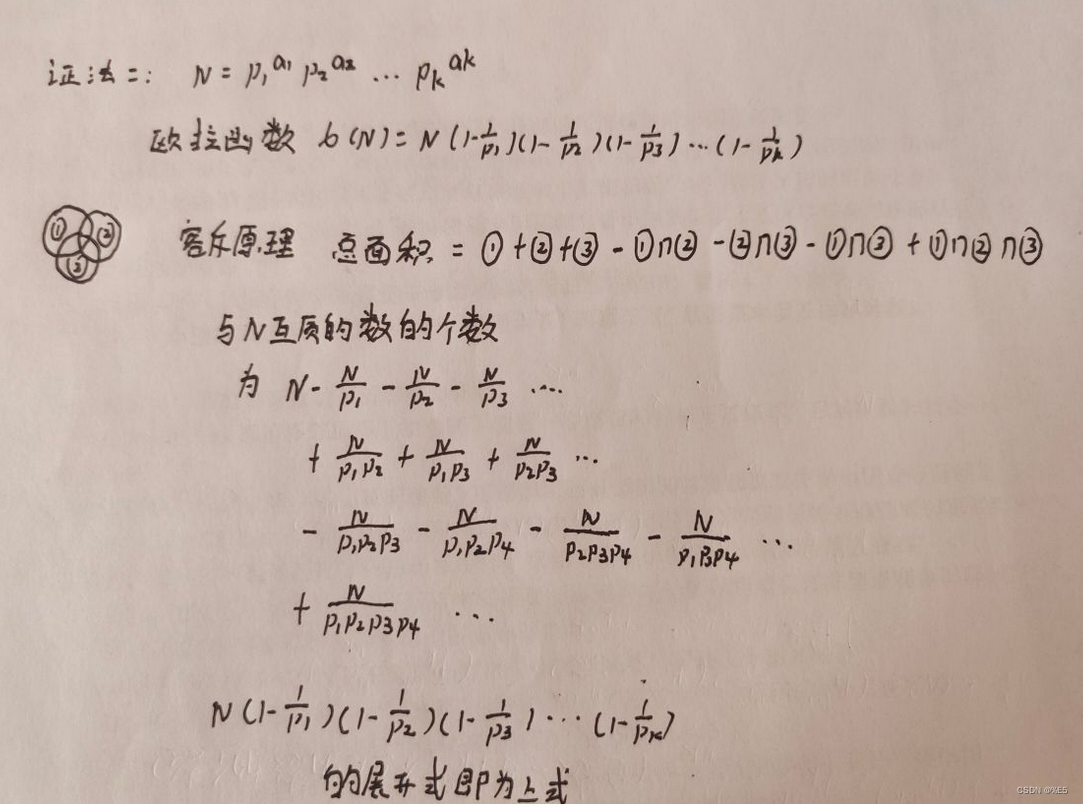 证法二: N = p₁^a₁ p₂^a₂ ... pₖ^aₖ
欧拉函数 φ(N) = N(1-1/p₁)(1-1/p₂)(1-1/p₃)...(1-1/pₖ)
① ② ③
容斥原理 总面积 = ①+②+③-①∩②-②∩③-①∩③+①∩②∩③
与N互质的数的个数
为 N - N/p₁ - N/p₂ - N/p₃ ....
+ N/p₁p₂ + N/p₁p₃ + N/p₂p₃ ...
- N/p₁p₂p₃ - N/p₁p₂p₄ - N/p₂p₃p₄ - N/p₁p₃p₄ ...
+ N/p₁p₂p₃p₄ ...
N(1-1/p₁)(1-1/p₂)(1-1/p₃)...(1-1/pₖ)
的展开式即为上式